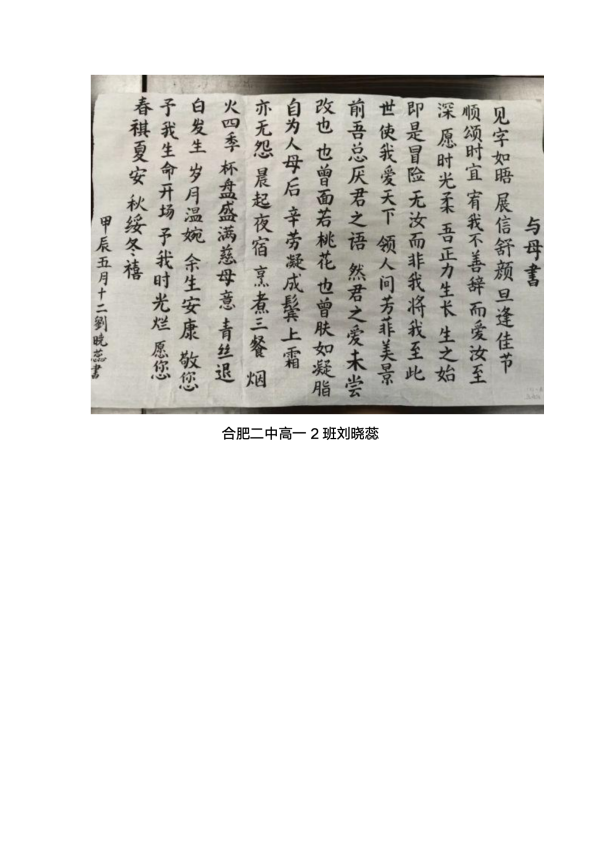 与母書
见字如晤 展信舒颜 旦逢佳节
顺颂时宜 宥我不善辞而爱汝至
深 愿时光柔 吾正力生长 生之始
即是冒险 无汝而非我将我至此
世使我爱天下 领人间芳菲美景
前吾总厌君之语 然君之爱未尝
改也 也曾面若桃花 也曾肤如凝脂
自为人母后 辛劳凝成鬓上霜
亦无怨 晨起夜宿 烹煮三餐 烟
火四季 杯盘盛满慈母意 青丝退
白发生 岁月温婉 余生安康 敬您
予我生命开场 予我时光烂 愿您
春祺夏安 秋绥冬禧
甲辰五月十二劉晓蕊書
合肥二中高一 2 班刘晓蕊